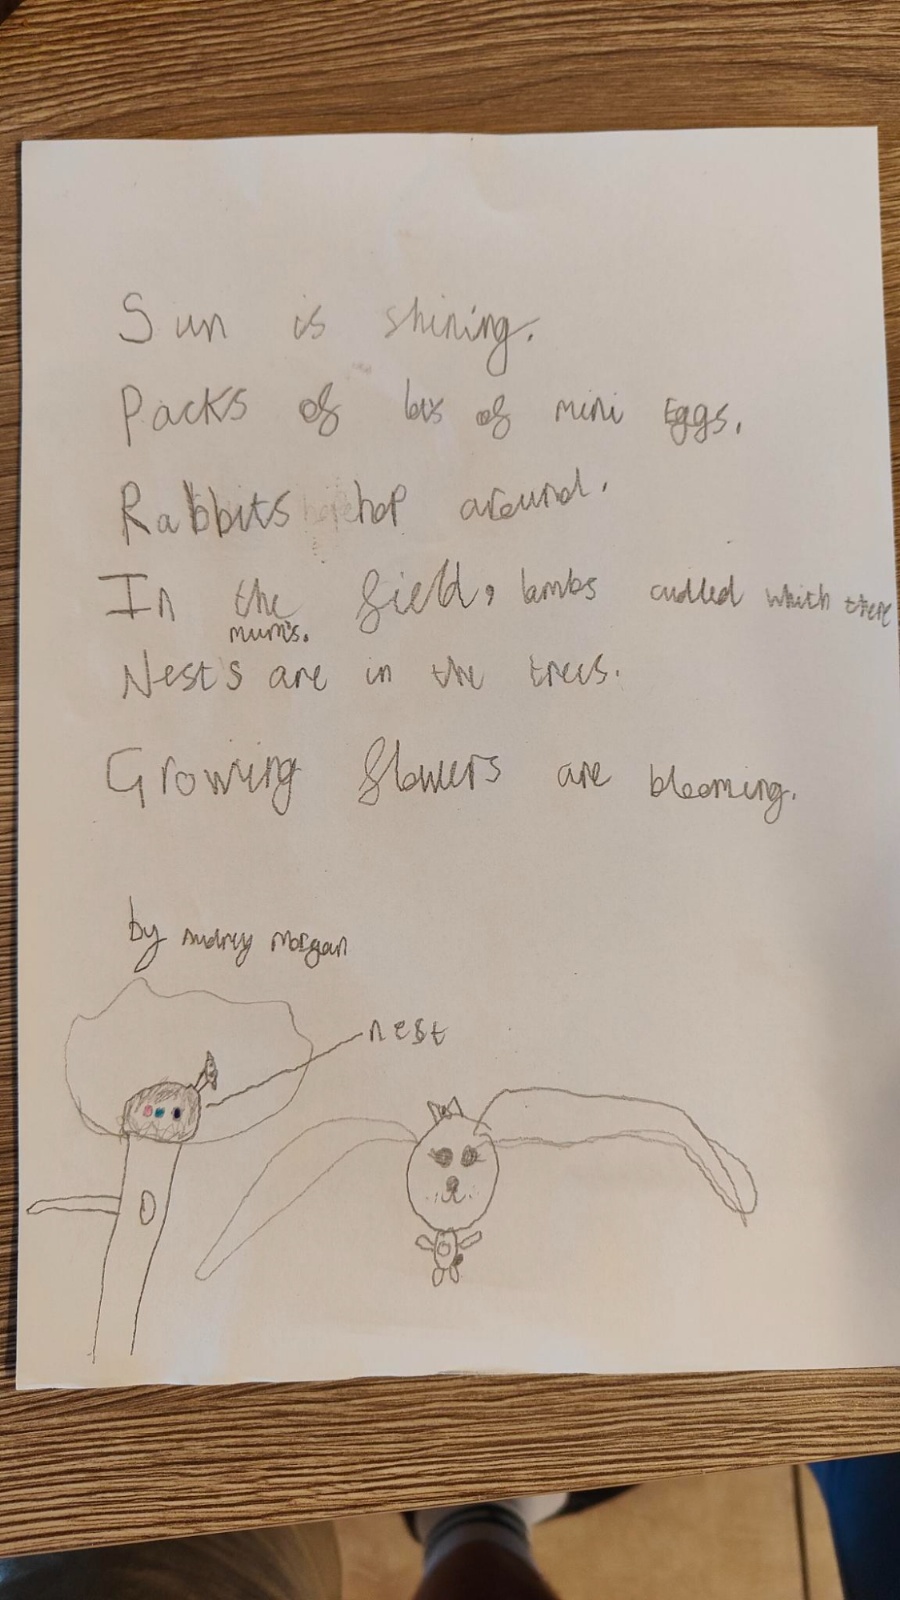 Sun is shining.
Packs of bis of mini Eggs.
Rabbits hop around.
In the field, lambs cudled which there
mum's.
Nest's are in the trees.
Growing flowers are blooming.
by Audrey Morgan
nest